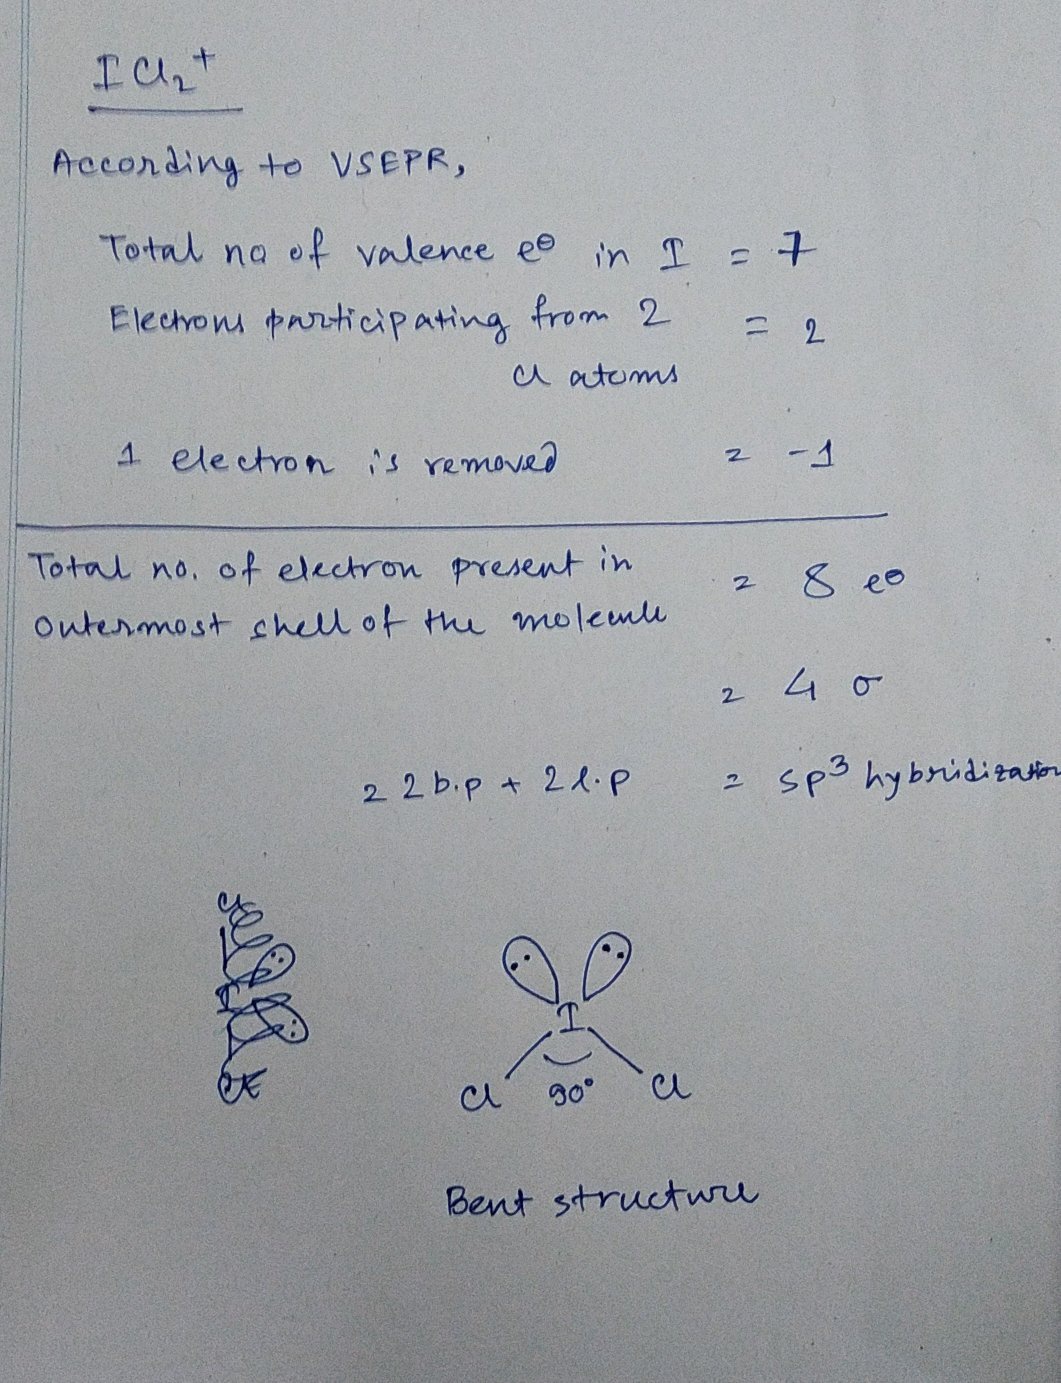 ICl₂⁺
According to VSEPR,
Total no of valence e⊖ in I = 7
Electrons participating from 2 = 2
Cl atoms
1 electron is removed = -1
Total no. of electron present in
outermost shell of the molecule = 8 e⊖
= 4 σ
= 2 b.p + 2 l.p = sp³ hybridization
Cl
I
I
Cl 90° Cl
Bent structure